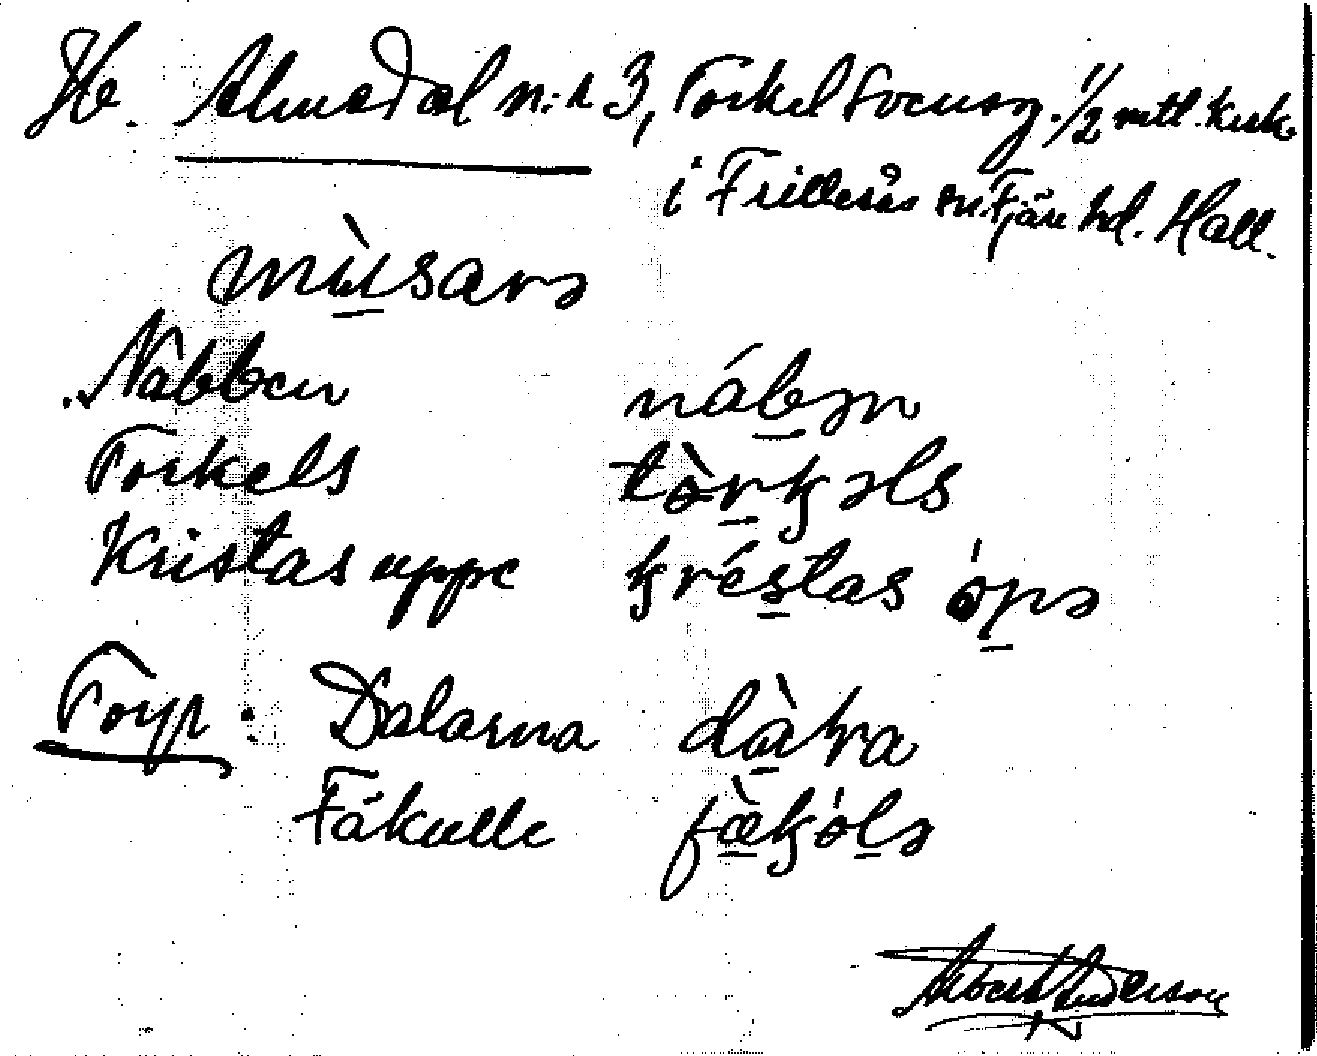 Hb. Almedal n:r 3, Torkel Svensg. 1/2 mtl. krsk.
i Frillesås sn. Fjäre hd. Hall.
mùsarə
Nabben nábən
Torkels tòrkəls
Kristas uppe kréstas ópə
Torp: Dalarna dàɫra
Fåkulle fàkólə
Albert Anderson